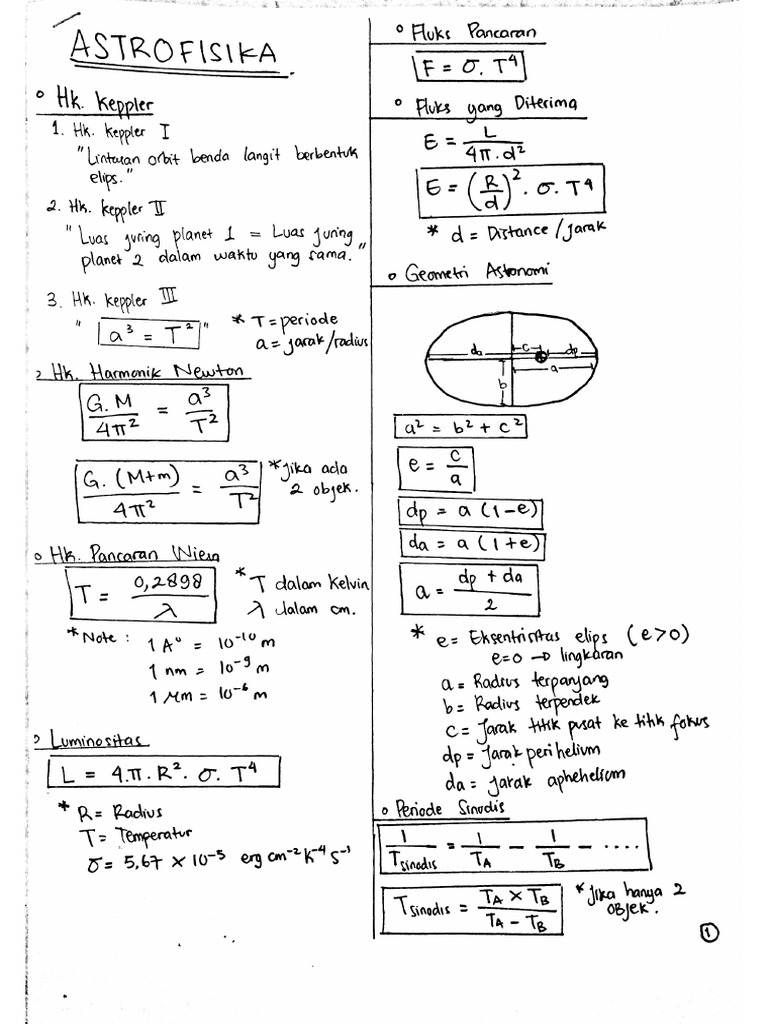 ASTROFISIKA
° Hk. Keppler
1. Hk. Keppler I
"Lintasan orbit benda langit berbentuk
elips."
2. Hk. Keppler II
"Luas juring planet 1 = Luas juring
planet 2 dalam waktu yang sama."
3. Hk. Keppler III
" a³ = T² "
* T = periode
a = jarak/radius
° Hk. Harmonik Newton
G.M / 4π² = a³ / T²
G.(M+m) / 4π² = a³ / T²
* Jika ada
2 objek.
° Hk. Pancaran Wien
T = 0,2898 / λ
* T dalam Kelvin
λ dalam cm.
* Note : 1 A° = 10⁻¹⁰ m
1 nm = 10⁻⁹ m
1 μm = 10⁻⁶ m
° Luminositas
L = 4.π.R². σ. T⁴
* R = Radius
T = Temperatur
σ = 5,67 × 10⁻⁵ erg cm⁻² K⁻⁴ s⁻¹
° Fluks Pancaran
F = σ. T⁴
° Fluks yang Diterima
E = L / 4π.d²
E = (R/d)² . σ. T⁴
* d = Distance / jarak
° Geometri Astronomi
da c dp
a
b
a² = b² + c²
e = c / a
dp = a (1-e)
da = a (1+e)
a = dp + da / 2
* e = Eksentrisitas elips (e>0)
e=0 → lingkaran
a = Radius terpanjang
b = Radius terpendek
c = Jarak titik pusat ke titik fokus
dp = Jarak perihelium
da = jarak aphehelium
° Periode Sinodis
1/Tsinodis = 1/TA - 1/TB - ....
Tsinodis = TA × TB / TA - TB
* Jika hanya 2
objek.
1